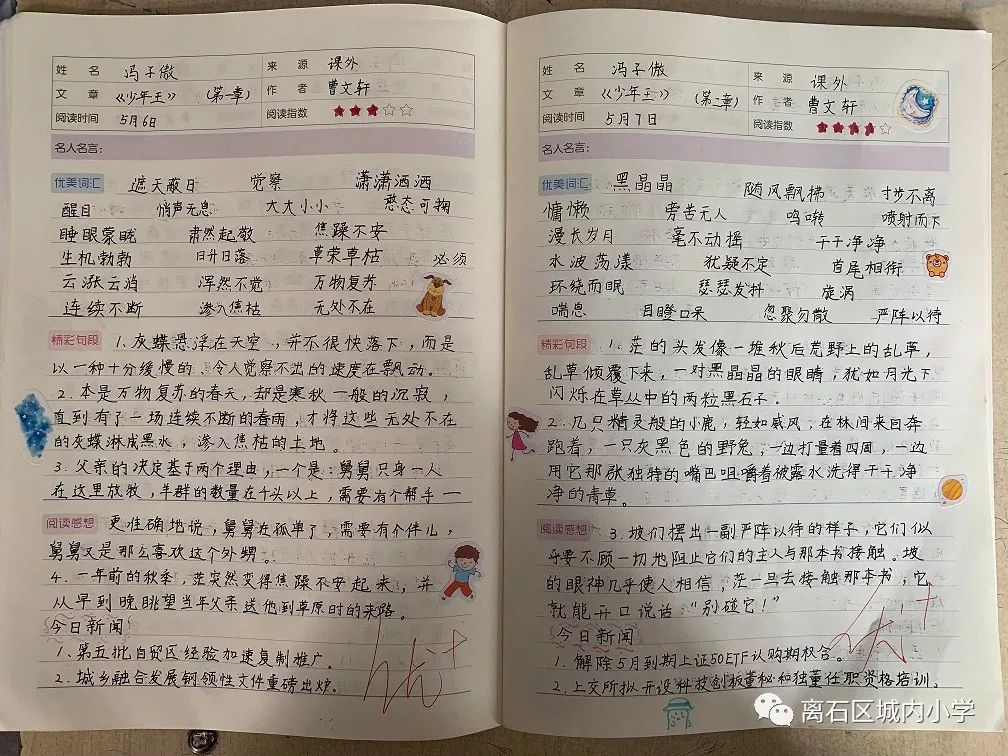 姓 名 冯子傲 来 源 课外
文 章 《少年王》 (第一章) 作 者 曹文轩
阅读时间 5月6日 阅读指数
名人名言:
优美词汇 遮天蔽日 觉察 潇潇洒洒
醒目 悄声无息 大大小小 憨态可掬
睡眼蒙眬 肃然起敬 焦躁不安
生机勃勃 日升日落 草荣草枯 必须
云涨云消 浑然不觉 万物复苏
连续不断 渗入焦枯 无处不在
精彩句段 1.灰蝶悬浮在天空,并不很快落下,而是
以一种十分缓慢的、令人觉察不出的速度在飘动。
2.本是万物复苏的春天,却是寒秋一般的沉寂,
直到有了一场连续不断的春雨,才将这些无处不在
的灰蝶淋成黑水,渗入焦枯的土地。
3.父亲的决定基于两个理由,一个是:舅舅只身一人
在这里放牧,羊群的数量在千头以上,需要有个帮手一
阅读感想 更准确地说,舅舅在孤单了,需要有个伴儿,
舅舅又是那么喜欢这个外甥。
4.一年前的秋季,茫突然变得焦躁不安起来,并
从早到晚眺望当年父亲送他到草原时的来路。
今日新闻
1.第五批自贸区经验加速复制推广。
2.城乡融合发展钢领性文件重磅出炉.
姓 名 冯子傲 来 源 课外
文 章 《少年王》 (第二章) 作 者 曹文轩
阅读时间 5月7日 阅读指数
名人名言:
优美词汇 黑晶晶 随风飘拂 寸步不离
慵懒 旁若无人 鸣啭 喷射而下
漫长岁月 毫不动摇 干干净净
水波荡漾 犹疑不定 首尾相衔
环绕而眠 瑟瑟发抖 旋涡
喘息 目瞪口呆 忽聚勿散 严阵以待
精彩句段 1.茫的头发像一堆秋后荒野上的乱草,
乱草倾覆下来,一对黑晶晶的眼睛,犹如月光下
闪烁在草丛中的两粒黑石子。
2.几只精灵般的小鹿,轻如威风,在林间来回奔
跑着,一只灰黑色的野兔,一边打量着四周,一边
用它那张独特的嘴巴咀嚼着被露水洗得干干净
净的青草。
阅读感想 3.坡们摆出一副严阵以待的样子,它们似
乎要不顾一切地阻止它们的主人与那本书接触。坡
的眼神几乎使人相信,茫一旦去接触那本书,它
就能开口说话:“别碰它!”
今日新闻
1.解除5月到期上证50ETF认购期权合。
2.上交所拟开设科技创板董秘和独董任职资格培训。
离石区城内小学